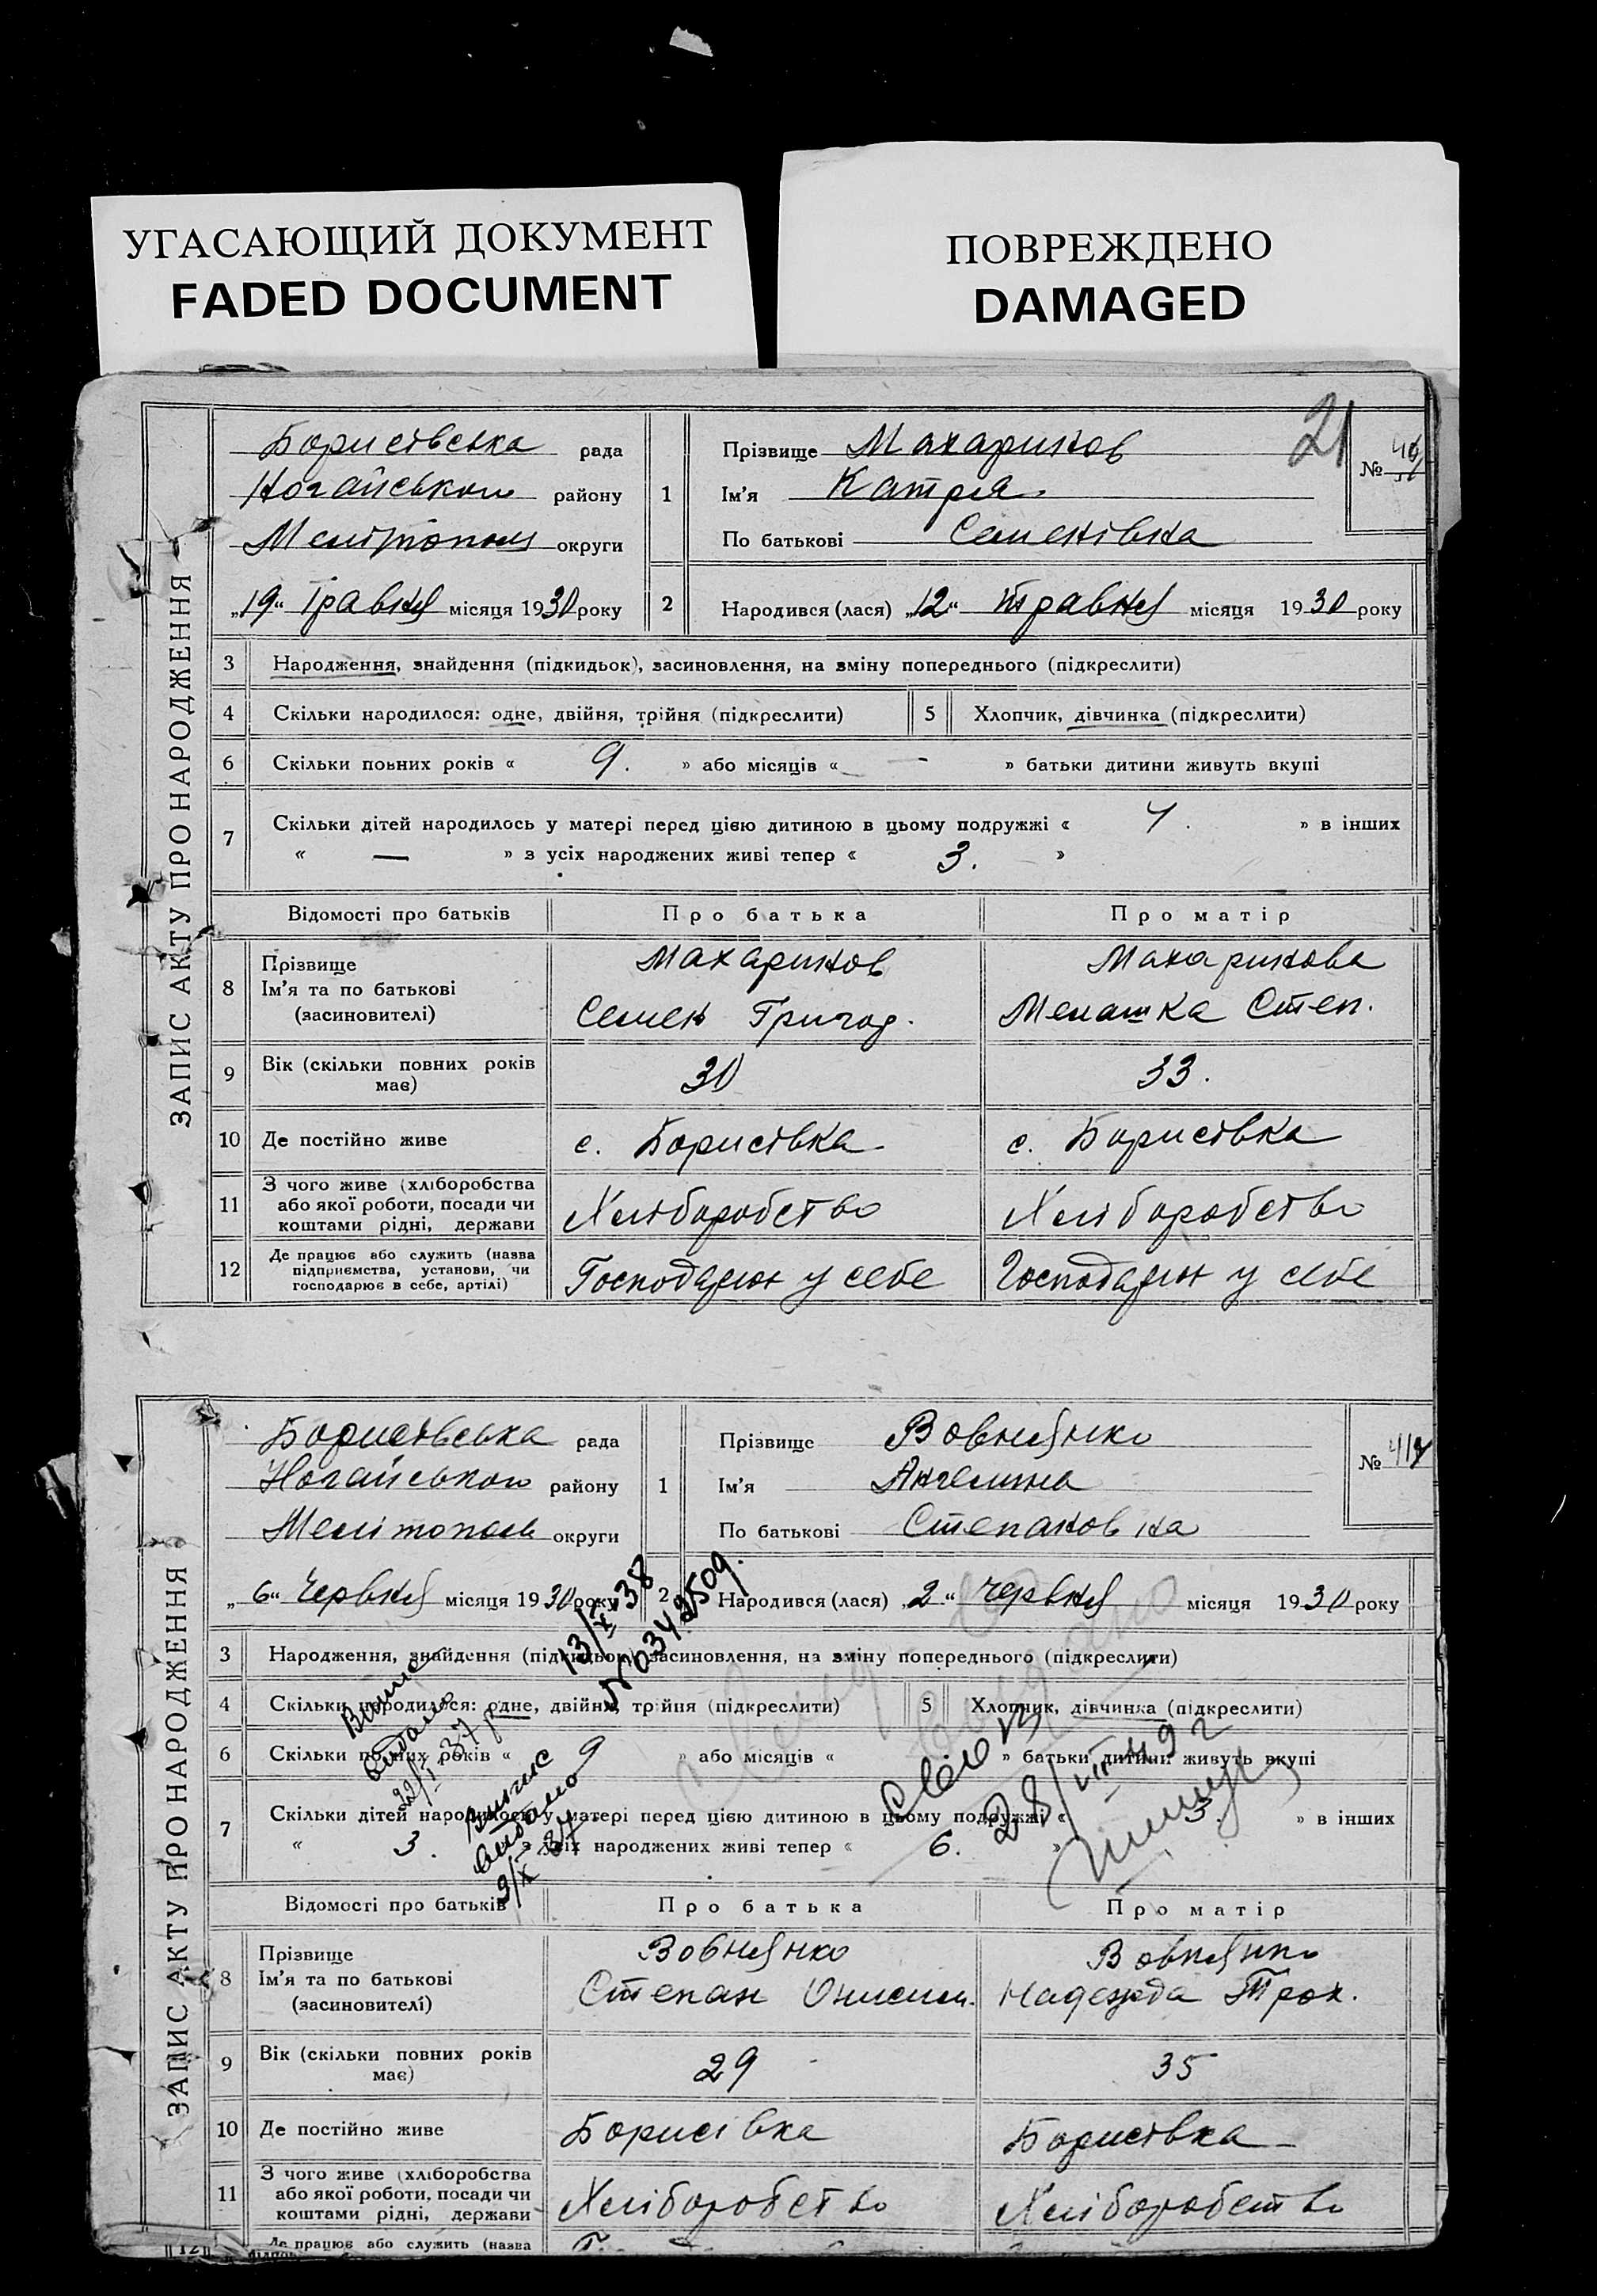 УГАСАЮЩИЙ ДОКУМЕНТ
FADED DOCUMENT
ПОВРЕЖДЕНО
DAMAGED
21
ЗАПИС АКТУ ПРО НАРОДЖЕННЯ
Борисівська рада
Ногайського району
Мелітополь округи
„19“ травня місяця 1930 року
1 Прізвище Махаринов
Ім'я Катря
По батькові Семенівна
№
2 Народився (лася) „12“ травня місяця 1930 року
3 Народження, знайдення (підкидьок), засиновлення, на зміну попереднього (підкреслити)
4 Скільки народилося: одне, двійня, трійня (підкреслити) 5 Хлопчик, дівчинка (підкреслити)
6 Скільки повних років « 9. » або місяців « - » батьки дитини живуть вкупі
7 Скільки дітей народилось у матері перед цією дитиною в цьому подружжі « 4. » в інших
« — » з усіх народжених живі тепер « 3. »
Відомості про батьків Про батька Про матір
8 Прізвище Махаринов Махаринова
Ім'я та по батькові
(засиновителі) Семен Григор. Мелашка Степ.
9 Вік (скільки повних років має) 30 33.
10 Де постійно живе с. Борисівка с. Борисівка
11 З чого живе (хліборобства
або якої роботи, посади чи
коштами рідні, держави Хліборобство Хліборобство
12 Де працює або служить (назва
підприємства, установи, чи
господарює в себе, артілі) Господарює у себе Господарює у себе
ЗАПИС АКТУ ПРО НАРОДЖЕННЯ
Борисівська рада
Ногайського району
Мелітополь округи
„6“ Червня місяця 1930 року
1 Прізвище Вовнянко
Ім'я Ангелина
По батькові Степановна
№
2 Народився (лася) „2“ червня місяця 1930 року
13/X-38
№ 0342509.
3 Народження, знайдення (підкидьок), засиновлення, на зміну попереднього (підкреслити)
4 Скільки народилося: одне, двійня, трійня (підкреслити) 5 Хлопчик, дівчинка (підкреслити)
6 Скільки повних років « 9 » або місяців « » батьки дитини живуть вкупі
7 Скільки дітей народилось у матері перед цією дитиною в цьому подружжі « 3. » в інших
« 3. » з усіх народжених живі тепер « 6. »
Випис
видано
Випис
видано
28/VII 49 г
Відомості про батьків Про батька Про матір
8 Прізвище Вовнянко Вовнянко
Ім'я та по батькові
(засиновителі) Степан Онисим. Надежда Трох.
9 Вік (скільки повних років має) 29 35
10 Де постійно живе Борисівка Борисівка
11 З чого живе (хліборобства
або якої роботи, посади чи
коштами рідні, держави Хліборобство Хліборобство
12 Де працює або служить (назва